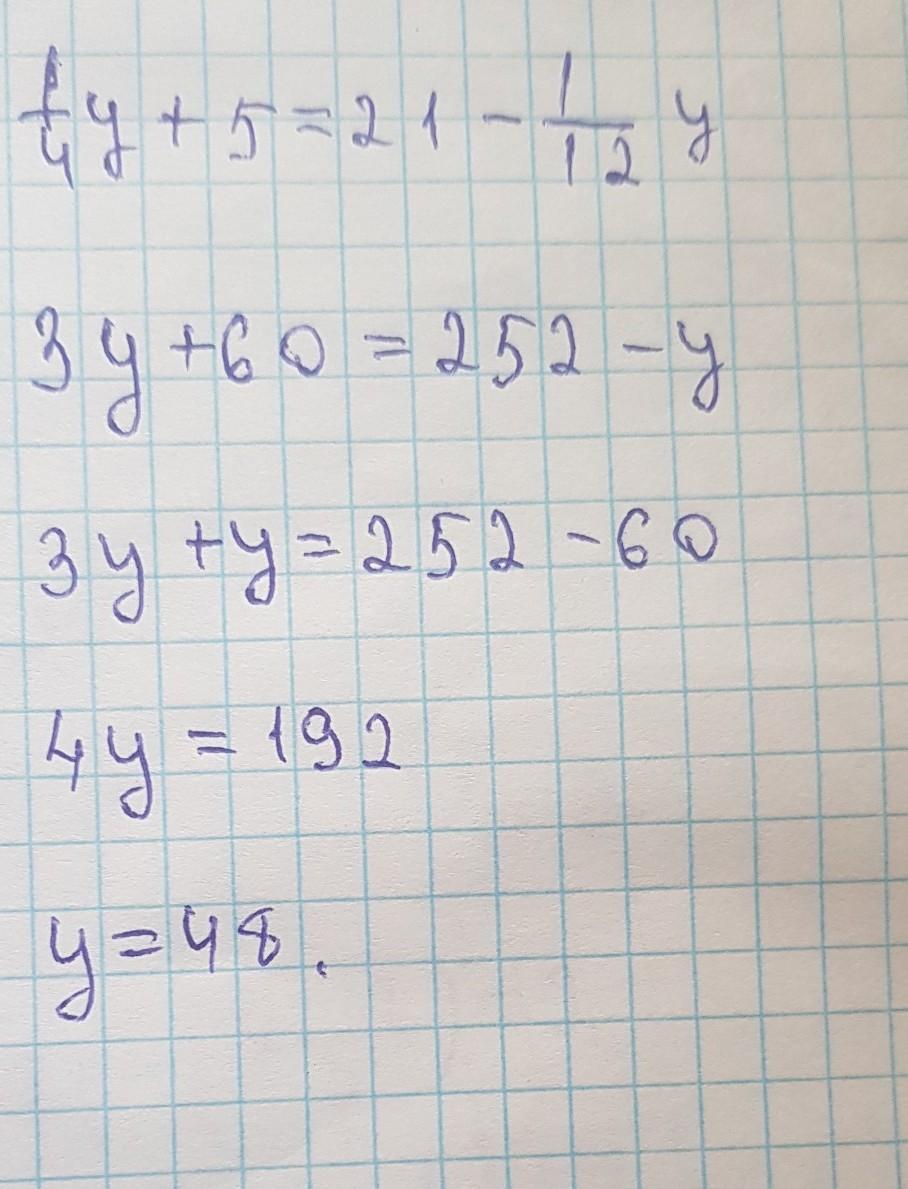 1/4 y + 5 = 21 - 1/12 y
3y + 60 = 252 - y
3y + y = 252 - 60
4y = 192
y = 48.